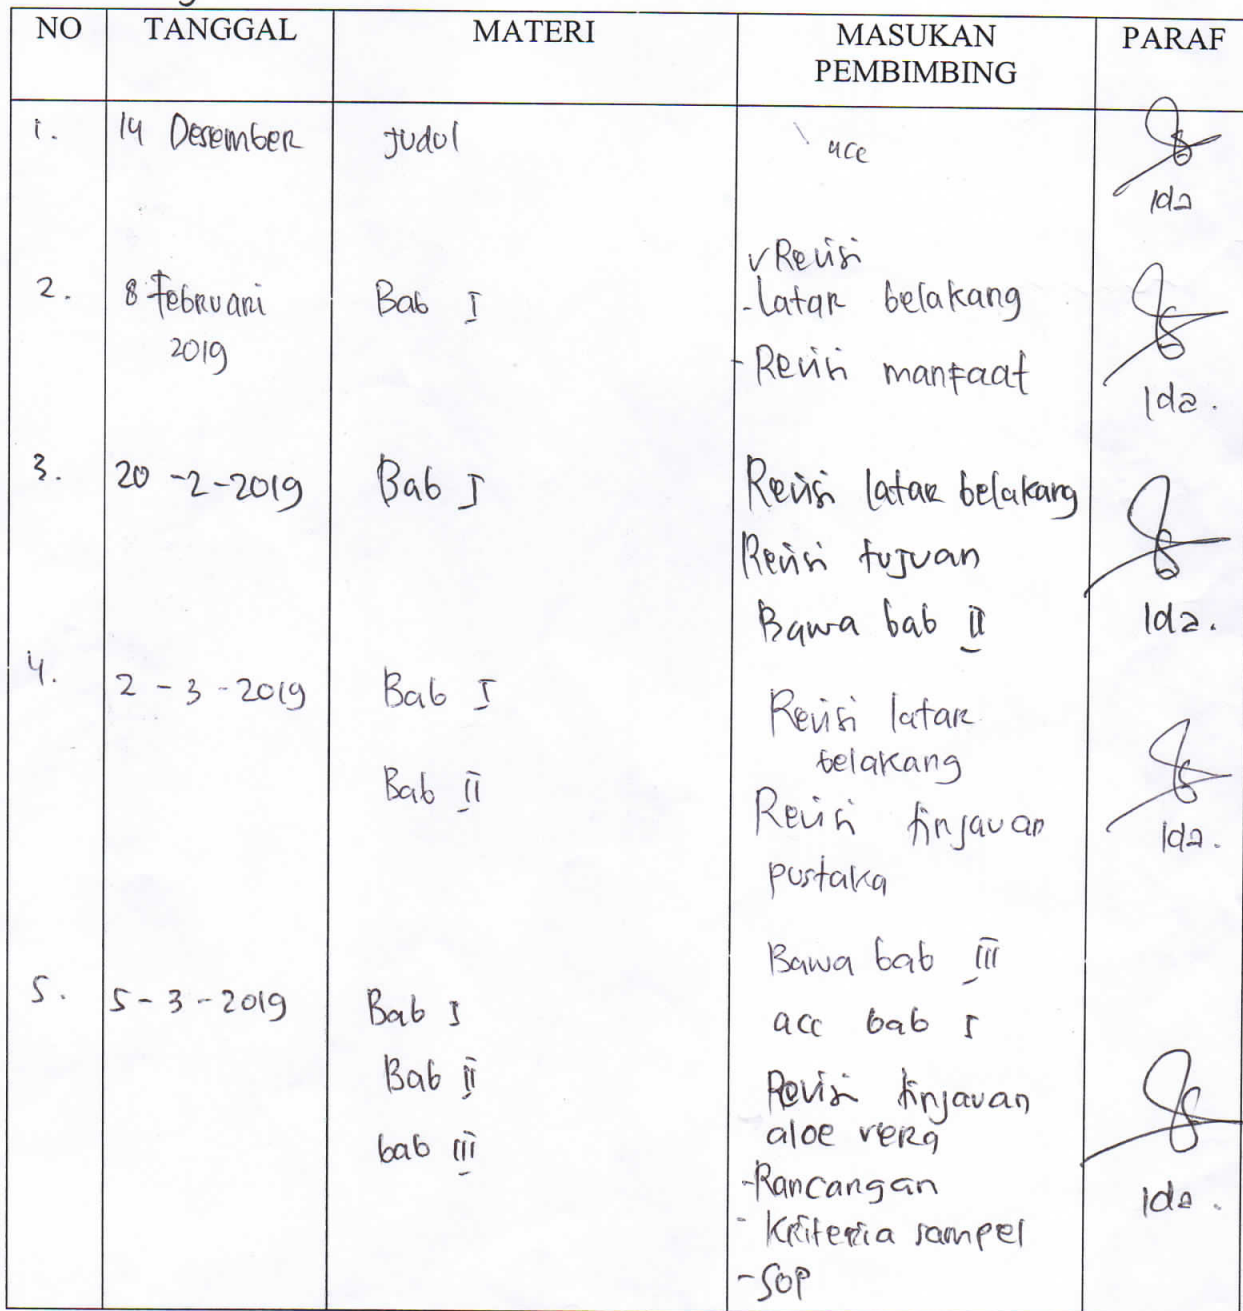 NO TANGGAL MATERI MASUKAN PEMBIMBING PARAF
1. 14 Desember Judul acc
Ida
2. 8 Februari 2019 Bab I
Revisi
- latar belakang
- Revisi manfaat
Ida.
3. 20-2-2019 Bab I Revisi latar belakang
Revisi tujuan
Bawa bab II
Ida.
4. 2-3-2019 Bab I Revisi latar belakang
Bab II Revisi tinjauan pustaka
Ida.
Bawa bab III
5. 5-3-2019 Bab I acc bab I
Bab II Revisi tinjauan aloe vera
bab III
- Rancangan
- Kriteria sampel
- SOP
Ida.